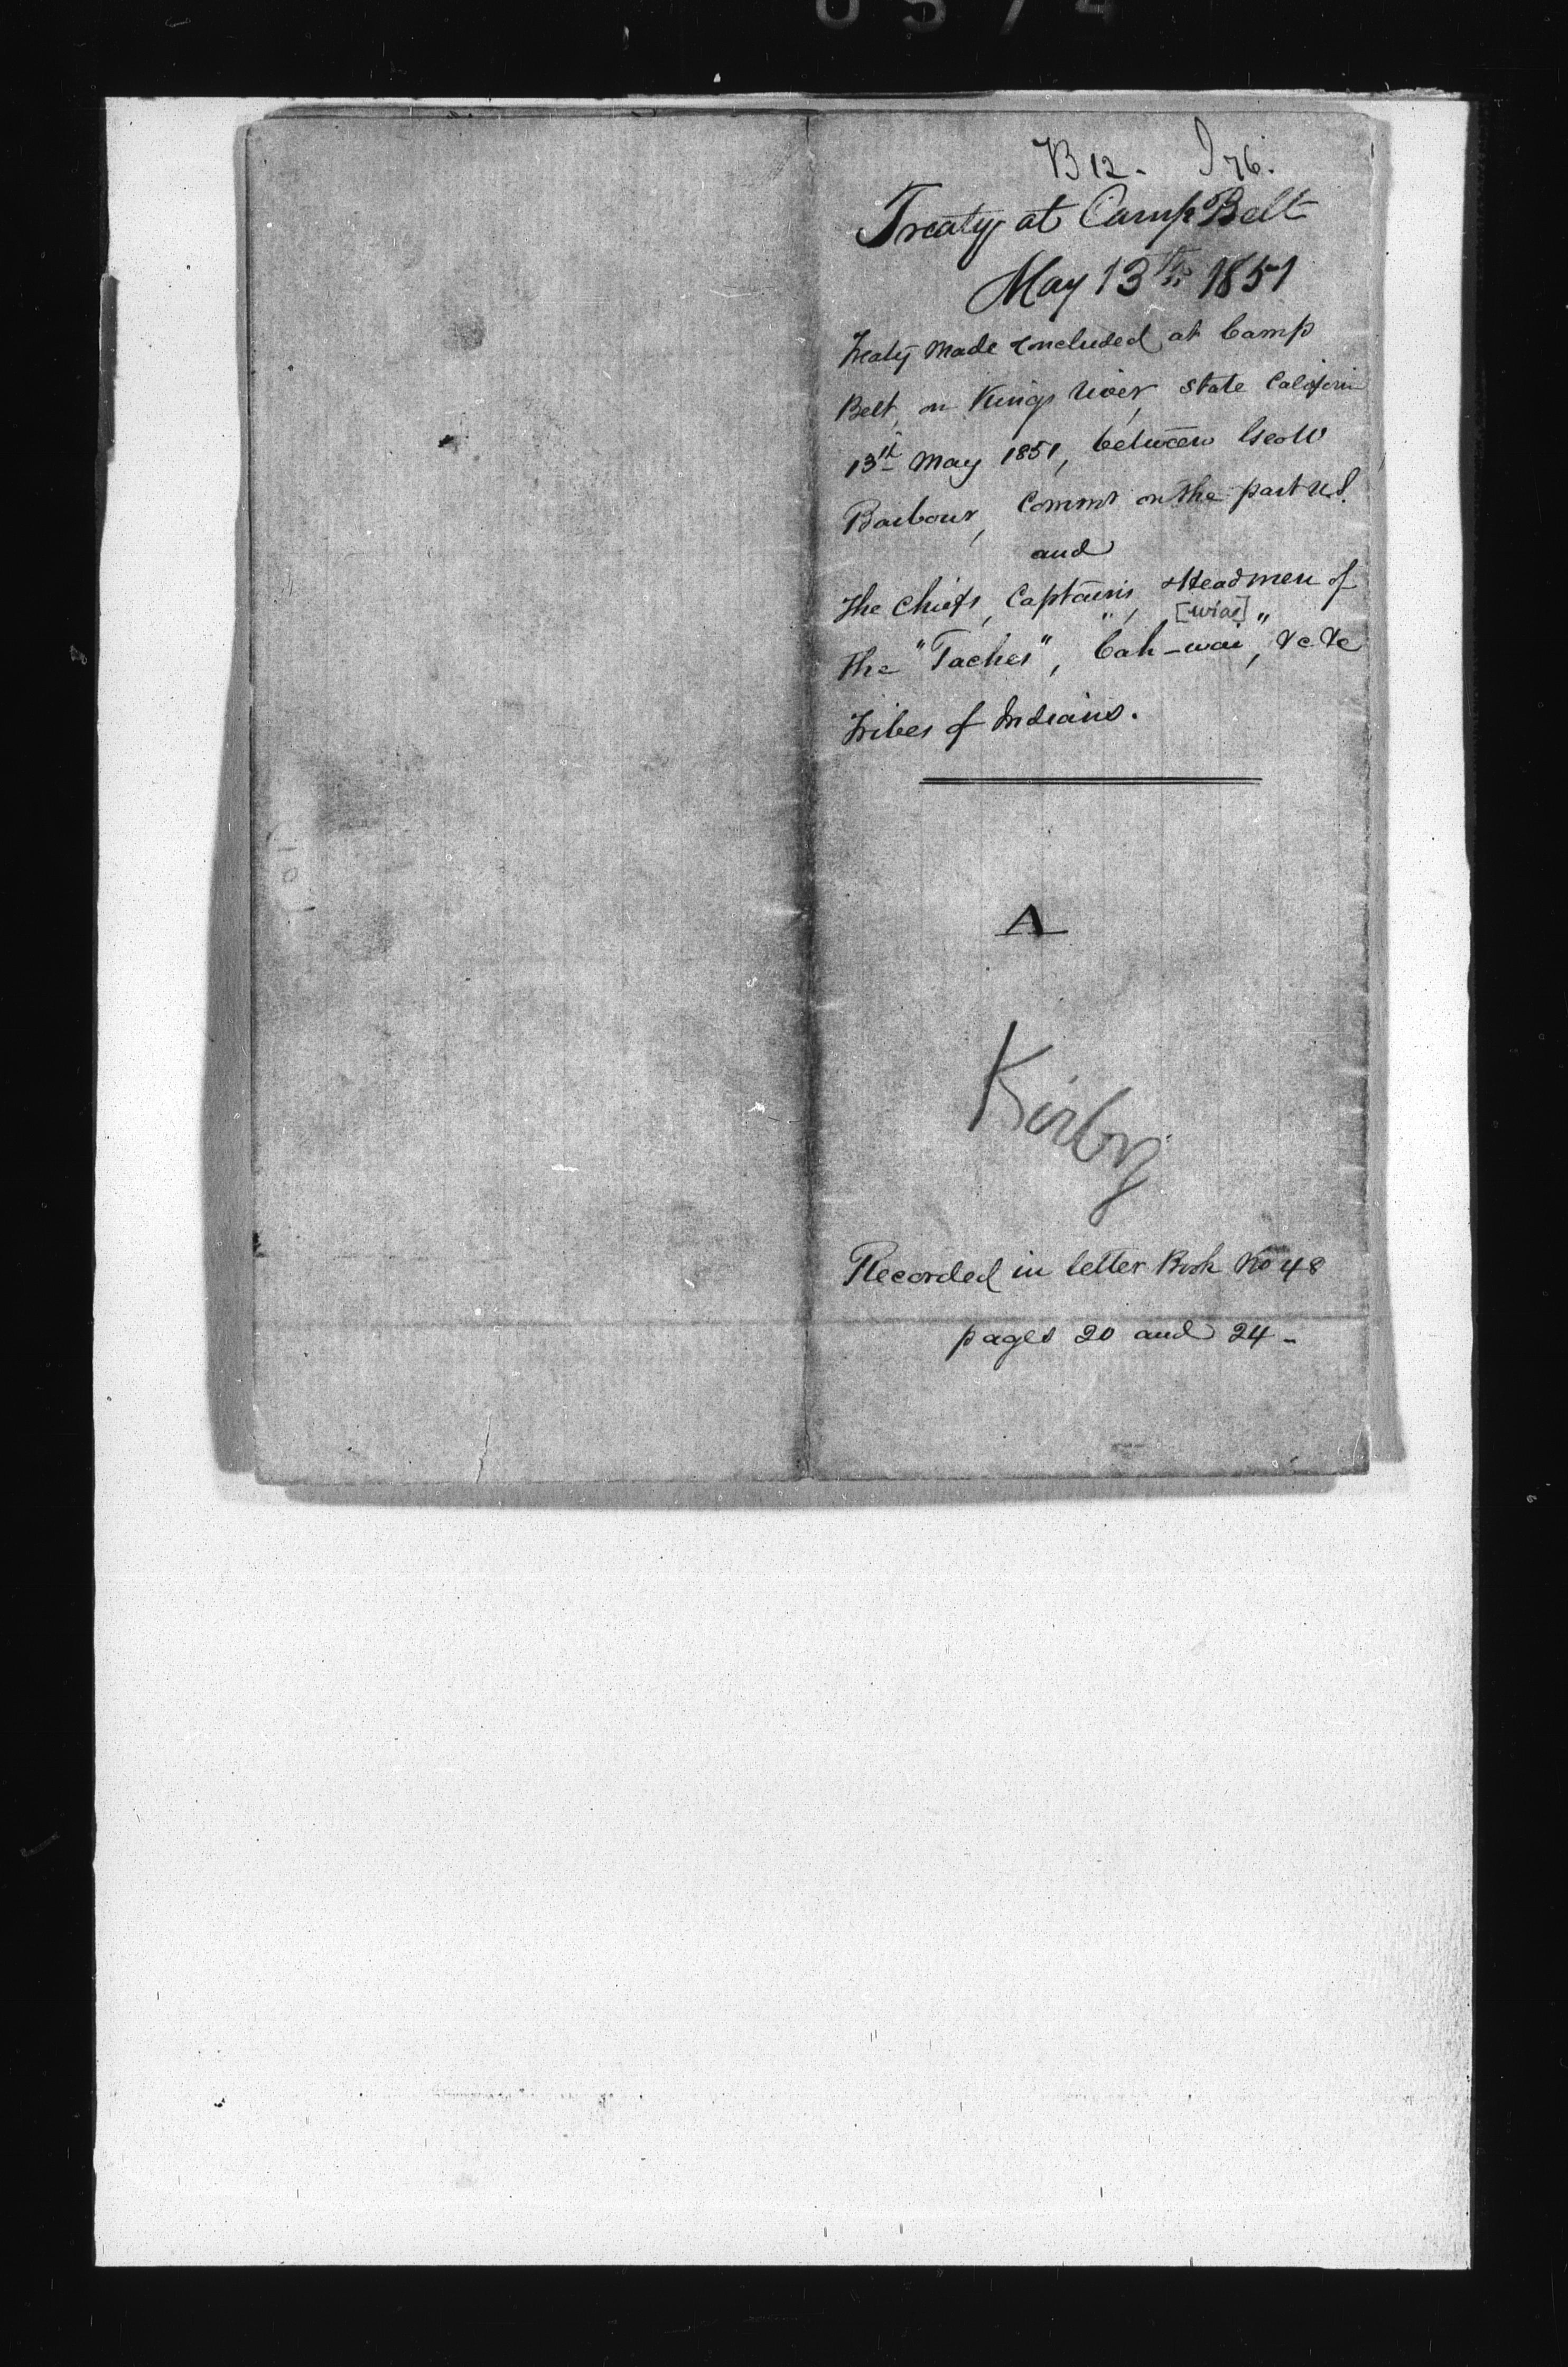 B 12. I 76.
Treaty at Camp Belt
May 13th 1851
Treaty made concluded at Camp
Belt, on Kings river, State Califorin
13th May 1851, between Geo W
Barbour, Commr on the part U.S.
and
The Chiefs, Captains, & Headmen of
[wiai]
the "Taches", "Cah-wai", &c &c
Tribes of Indians.
A
Kirby
Recorded in letter Book No 48
pages 20 and 24-